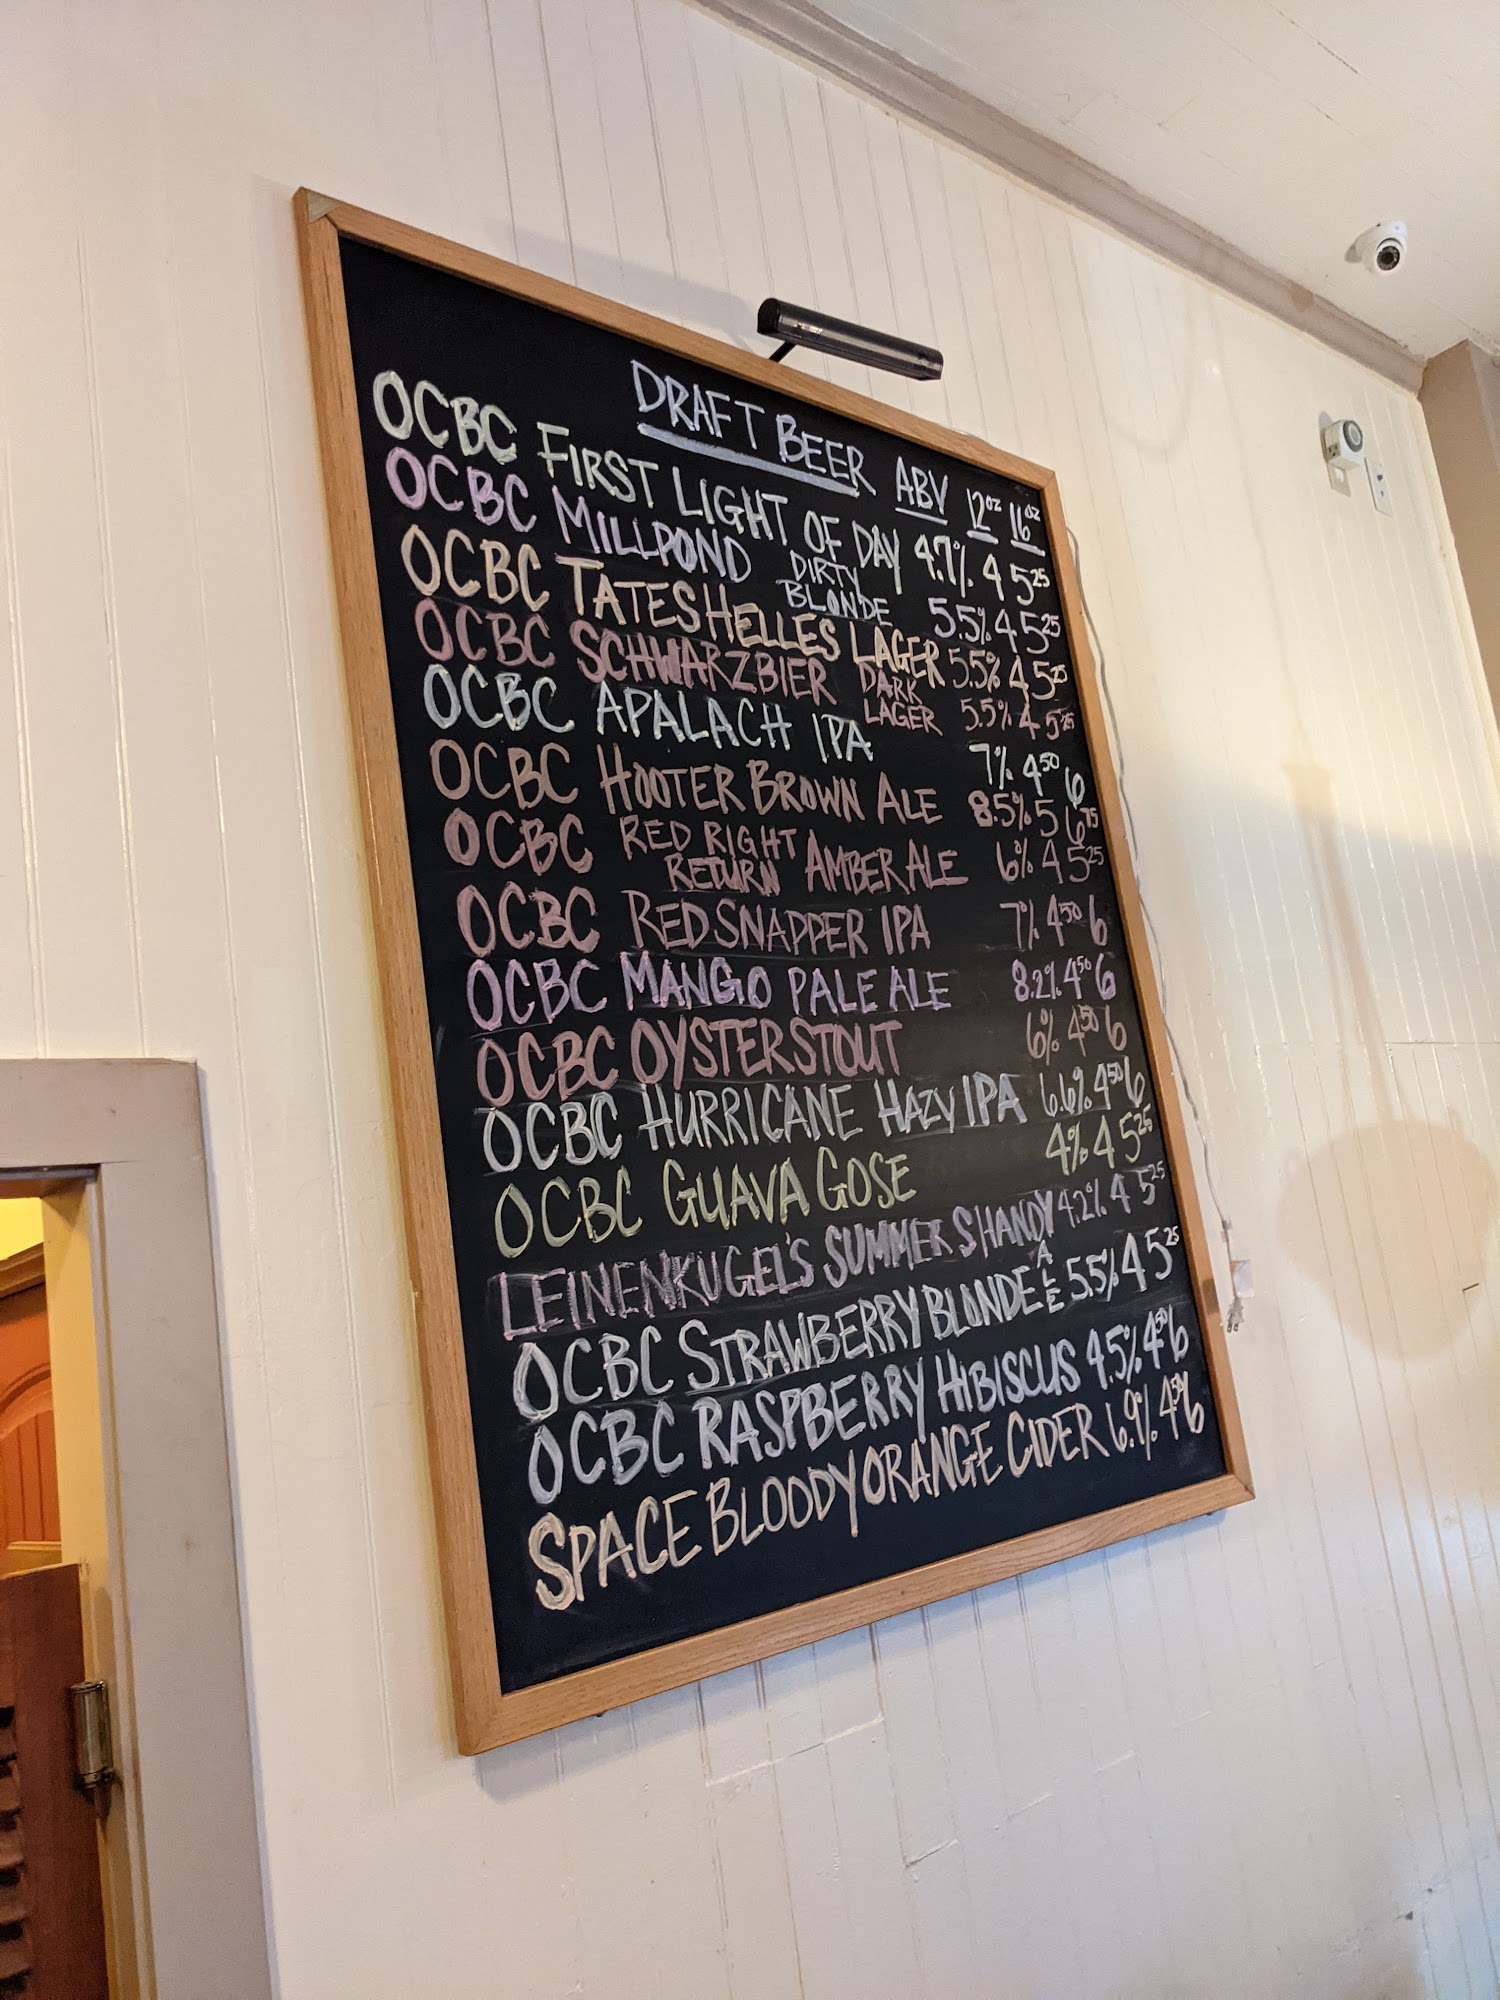 DRAFT BEER ABV 12oz 16oz
OCBC FIRST LIGHT OF DAY 4.7% 4 5 25
OCBC MILLPOND DIRTY BLONDE 5.5% 4 5 25
OCBC TATES HELLES LAGER 5.5% 4 5 25
OCBC SCHWARZBIER DARK LAGER 5.5% 4 5 25
OCBC APALACH IPA 7% 4 50 6
OCBC HOOTER BROWN ALE 8.5% 5 6 75
OCBC RED RIGHT RETURN AMBER ALE 6% 4 5 25
OCBC RED SNAPPER IPA 7% 4 50 6
OCBC MANGO PALE ALE 8.2% 4 50 6
OCBC OYSTER STOUT 6% 4 50 6
OCBC HURRICANE HAZY IPA 6.6% 4 50 6
OCBC GUAVA GOSE 4% 4 5 25
LEINENKUGEL'S SUMMER SHANDY 4.2% 4 5 25
OCBC STRAWBERRY BLONDE ALE 5.5% 4 5 25
OCBC RASPBERRY HIBISCUS 4.5% 4 50 6
SPACE BLOODY ORANGE CIDER 6.9% 4 50 6